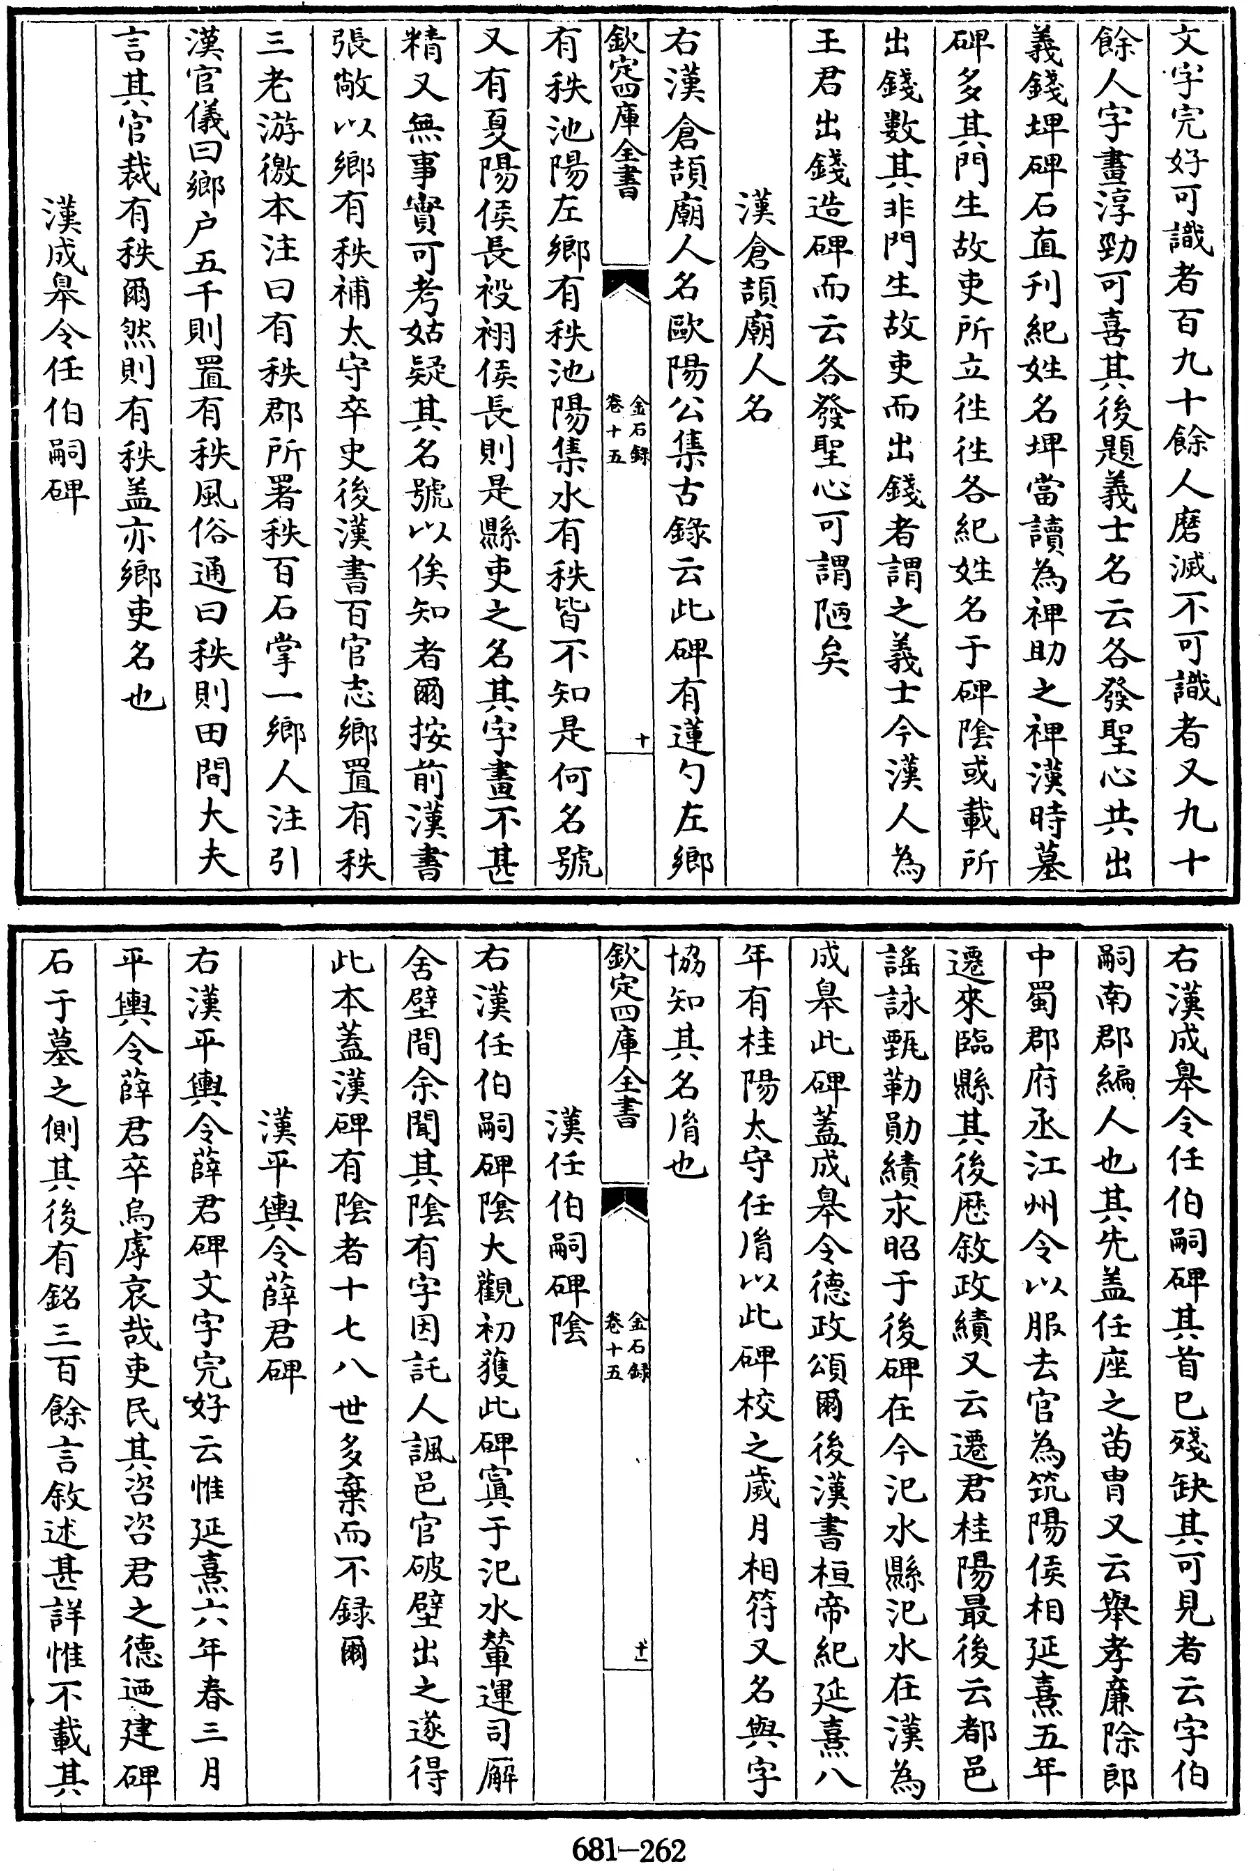 文字完好可識者百九十餘人磨滅不可識者又九十
餘人字畫淳勁可喜其後題義士名云各發聖心共出
義錢埤碑石直刋紀姓名埤當讀為裨助之裨漢時墓
碑多其門生故吏所立徃徃各紀姓名于碑隂或載所
出錢數其非門生故吏而出錢者謂之義士今漢人為
王君出錢造碑而云各發聖心可謂陋矣
漢倉頡廟人名
右漢倉頡廟人名歐陽公集古錄云此碑有蓮勺左鄉
欽定四庫全書
金石録
卷十五
十
有秩池陽左鄉有秩池陽集水有秩皆不知是何名號
又有夏陽侯長祋祤侯長則是縣吏之名其字畫不甚
精又無事實可考姑疑其名號以俟知者爾按前漢書
張敞以鄉有秩補太守卒史後漢書百官志鄉置有秩
三老游徼本注曰有秩郡所署秩百石掌一鄉人注引
漢官儀曰鄉户五千則置有秩風俗通曰秩則田間大夫
言其官裁有秩爾然則有秩盖亦鄉吏名也
漢成臯令任伯嗣碑
右漢成臯令任伯嗣碑其首已殘缺其可見者云字伯
嗣南郡編人也其先盖任座之苗胄又云舉孝廉除郎
中蜀郡府丞江州令以服去官為筑陽侯相延熹五年
遷來臨縣其後歴敘政績又云遷君桂陽最後云都邑
謠詠甄勒勛績永昭于後碑在今汜水縣汜水在漢為
成臯此碑蓋成臯令德政頌爾後漢書桓帝紀延熹八
年有桂陽太守任𦙍以此碑校之歲月相符又名與字
協知其名𦙍也
欽定四庫全書
金石録
卷十五
十一
漢任伯嗣碑隂
右漢任伯嗣碑隂大觀初獲此碑寘于汜水輦運司廨
舍壁間余聞其隂有字因託人諷邑官破壁出之遂得
此本蓋漢碑有隂者十七八世多棄而不録爾
漢平輿令薛君碑
右漢平輿令薛君碑文字完好云惟延熹六年春三月
平輿令薛君卒烏虖哀哉吏民其咨咨君之德迺建碑
石于墓之側其後有銘三百餘言敘述甚詳惟不載其
681-262